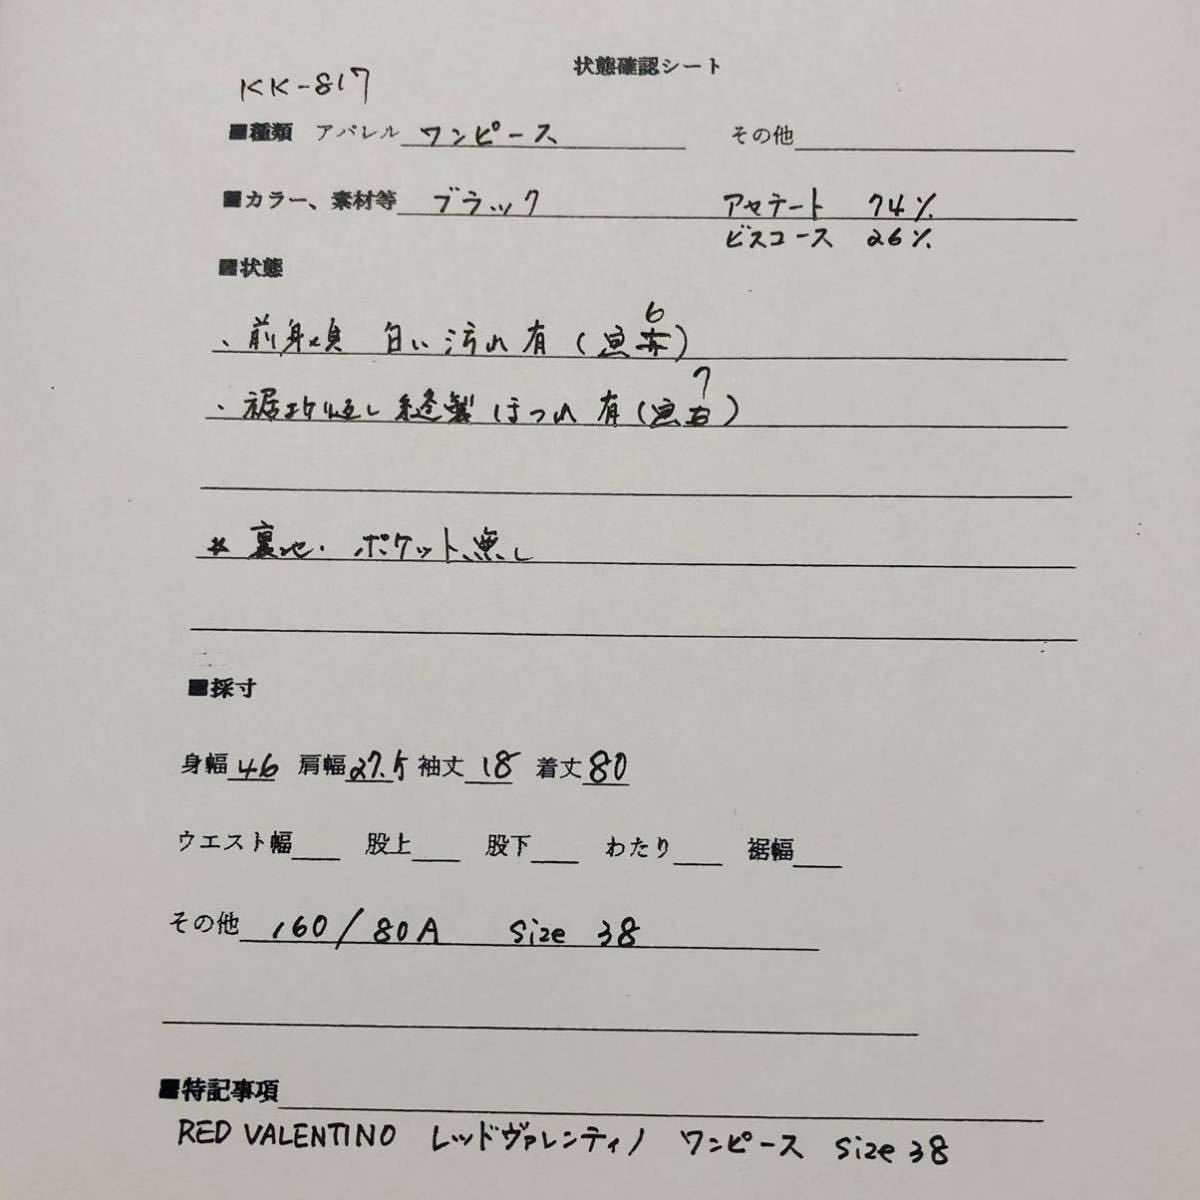 状態確認シート
KK-817
■種類 アパレル ワンピース その他
■カラー、素材等 ブラック アセテート 74%
ビスコース 26%
■状態
・前身頃 白い汚れ有(画赤) 6
・裾折り返し 縫製 ほつれ 有(画) 7
* 裏地・ポケット無し
■採寸
身幅 46 肩幅 27.5 袖丈 18 着丈 80
ウエスト幅 股上 股下 わたり 裾幅
その他 160/80A size 38
■特記事項
RED VALENTINO レッドヴァレンティノ ワンピース size 38